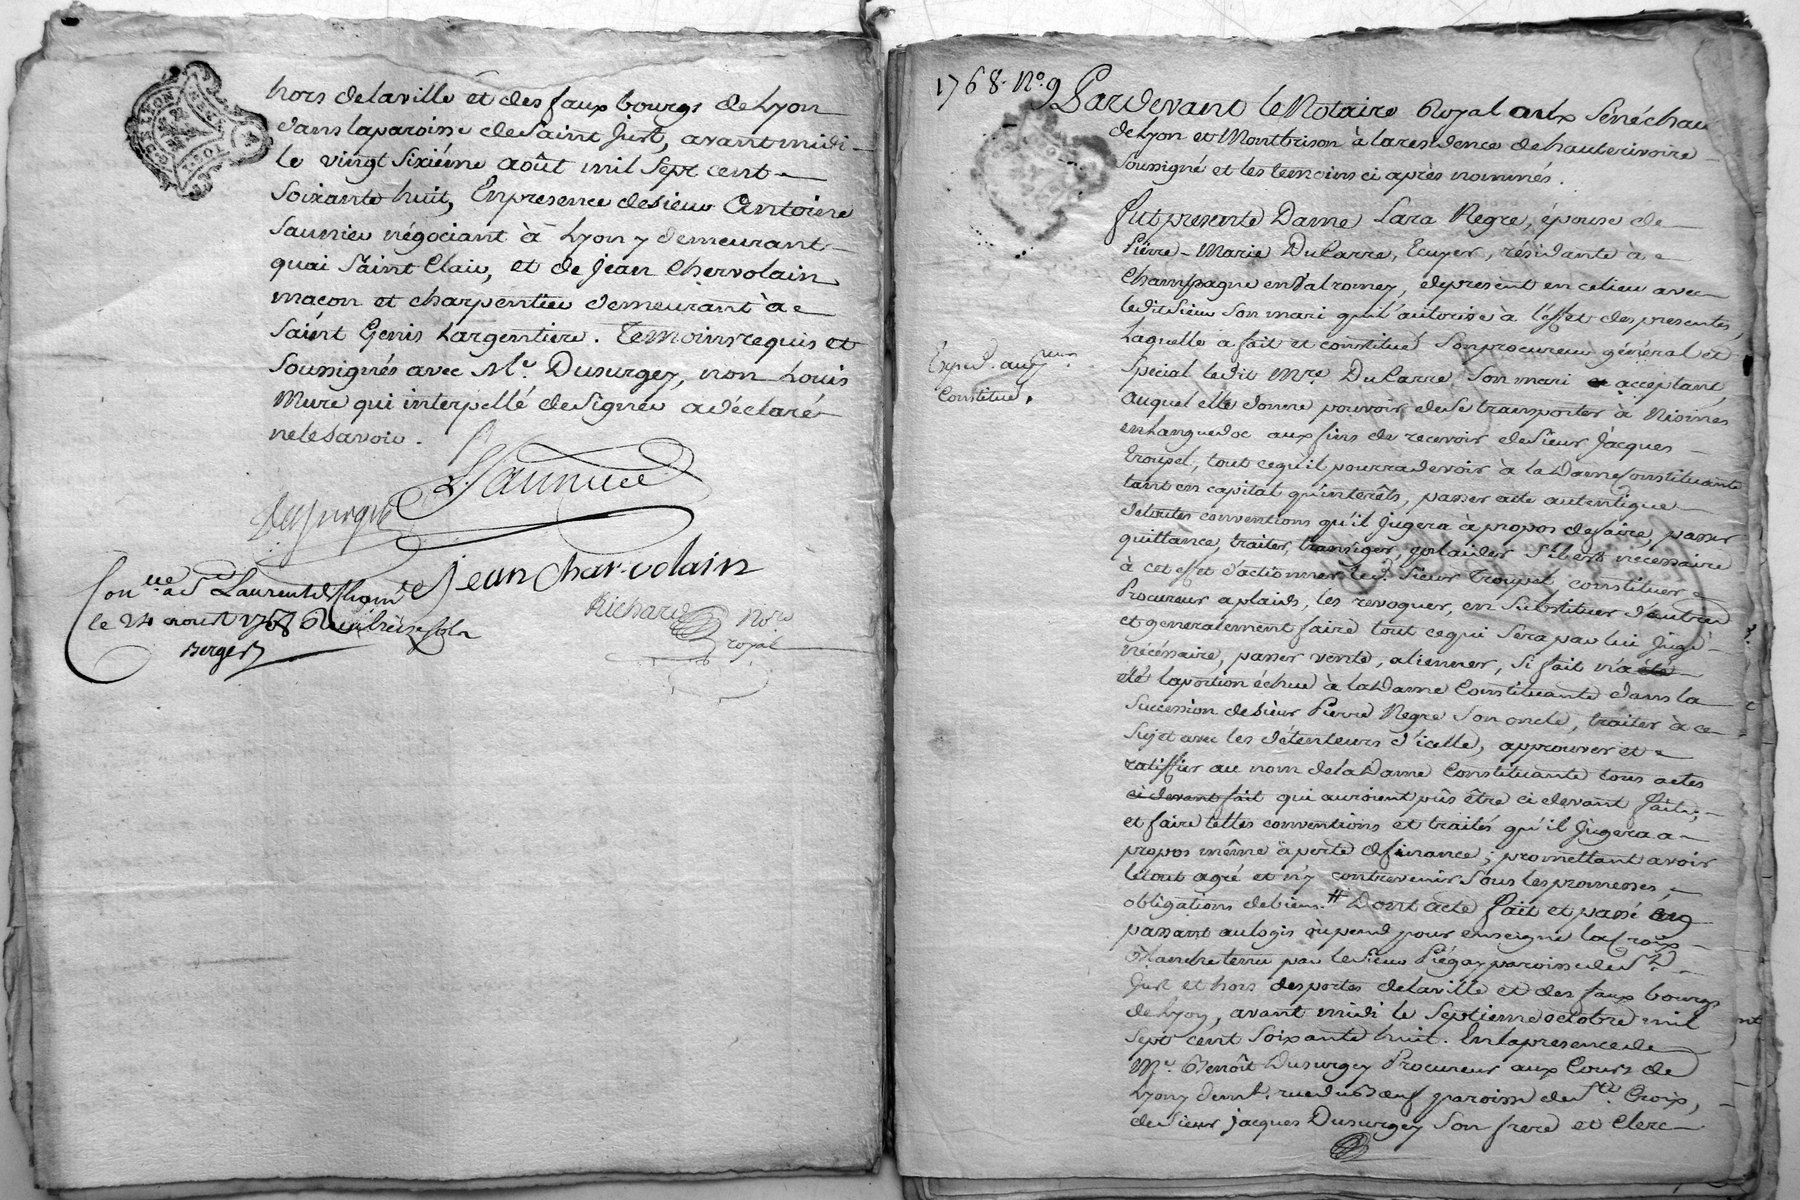 hors delaville et des faux bourgs de Lyon
dans laparoisse de Saint Just, avant midi
le vingt Sixiéme août mil Sept cent
Soixante huit, Enpresence desieur Antoine
Saunier négociant à Lyon y demeurant
quai Saint Clair, et de Jean Chervolain
maçon et charpentier demeurant à
Saint Genis Largentiere. Temoins requis et
Soussignés avec Me. Dusurgey, non Louis
Mure qui interpellé designer adéclaré
nelesavoir.
Saunier
Dusurgey
Jean Char-volain
St Laurent de Cham
le 24 aoust 1768
Berger
Richard Nore
royal
1768. No. 9
Pardevant le Notaire Royal aux Sénéchau
de Lyon et Montbrison à laresidence dehauterivoire
Soussigné et les temoins ci après nommés.
fut presente Dame Sara Negre, épouse de
Pierre-Marie DuCarre, Ecuyer, résidante à
Champagne en Valromey, depresent en celieu avec
ledit Sieur Son mari qui l'autorise à l'effet des presentes,
Laquelle a fait et constitué Sonprocureur général et
Special ledit Mre. DuCarre Son mari acceptant,
auquel elle donne pouvoir de se transporter à Nismes
enLanguedoc aux fins de recevoir de Sieur Jacques
troupel, tout cequ'il pourra devoir à laDame Constituante
tant en capital qu'interêts, passer acte autentique
detoutes conventions qu'il jugera à propos defaire, passer
quittance, traiter, transiger, plaider S'il est nécessaire
à cet effet d'actionner led. Sieur Troupel, constituer
Procureur aplaids, les revoquer, en Substituer d'autres
et generalement faire tout cequi Sera par lui jugé
nécéssaire, passer vente, alienner, si fait n'a été
été laportion échue à laDame Constituante dans la
Succession desieur Pierre Negre Son oncle, traiter à ce
Sujet avec les détenteurs d'icelle, approuver et
ratiffier au nom delaDame Constituante tous actes
ci devant fait qui auroient pûs être ci devant faits,
et faire telles conventions et traités qu'il jugera a
propos même à perte definance; promettant avoir
letout agré et n'y contrevenir Sous les promesses,
obligations debiens.# Dont acte fait et passé en
passant aulogis où pend pour enseigne la Croix
Blanche tenu par le Sieur Piégay paroisse de St.
Just et hors desportes delaville et des faux bourgs
de Lyon, avant midi le Septieme octobre mil
Sept cent Soixante huit. Enlapresence de
Me. Benoît Dusurgey Procureur aux Cours de
Lyon y demt. rue du Bœuf paroisse de Ste. Croix,
de Sieur Jacques Dusurgey Son frere et Clerc
Exped. au
Constitué.